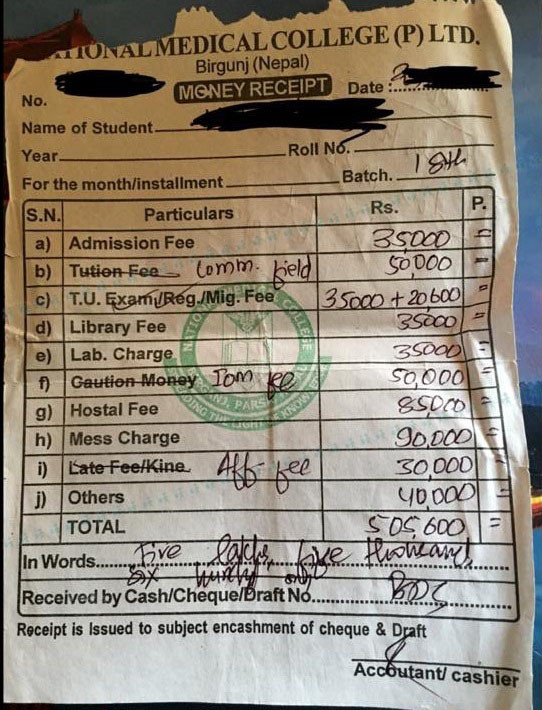 NATIONAL MEDICAL COLLEGE (P) LTD.
Birgunj (Nepal)
No. MONEY RECEIPT Date :
Name of Student
Year Roll No.
For the month/installment Batch. 18th
S.N. Particulars Rs. P.
a) Admission Fee 35000 =
b) Tution Fee Comm. field 50,000 =
c) T.U. Exam/Reg./Mig. Fee 35000 + 20600 =
d) Library Fee 35000 =
e) Lab. Charge 35000 =
f) Caution Money Iom fee 50,000 =
g) Hostal Fee 85000 =
h) Mess Charge 90,000 =
i) Late Fee/Kine Aff- fee 30,000 =
j) Others 40,000 =
TOTAL 505,600 =
In Words..... Five five thousand
six only
Received by Cash/Cheque/Draft No.
Receipt is Issued to subject encashment of cheque & Draft
Accoutant/ cashier